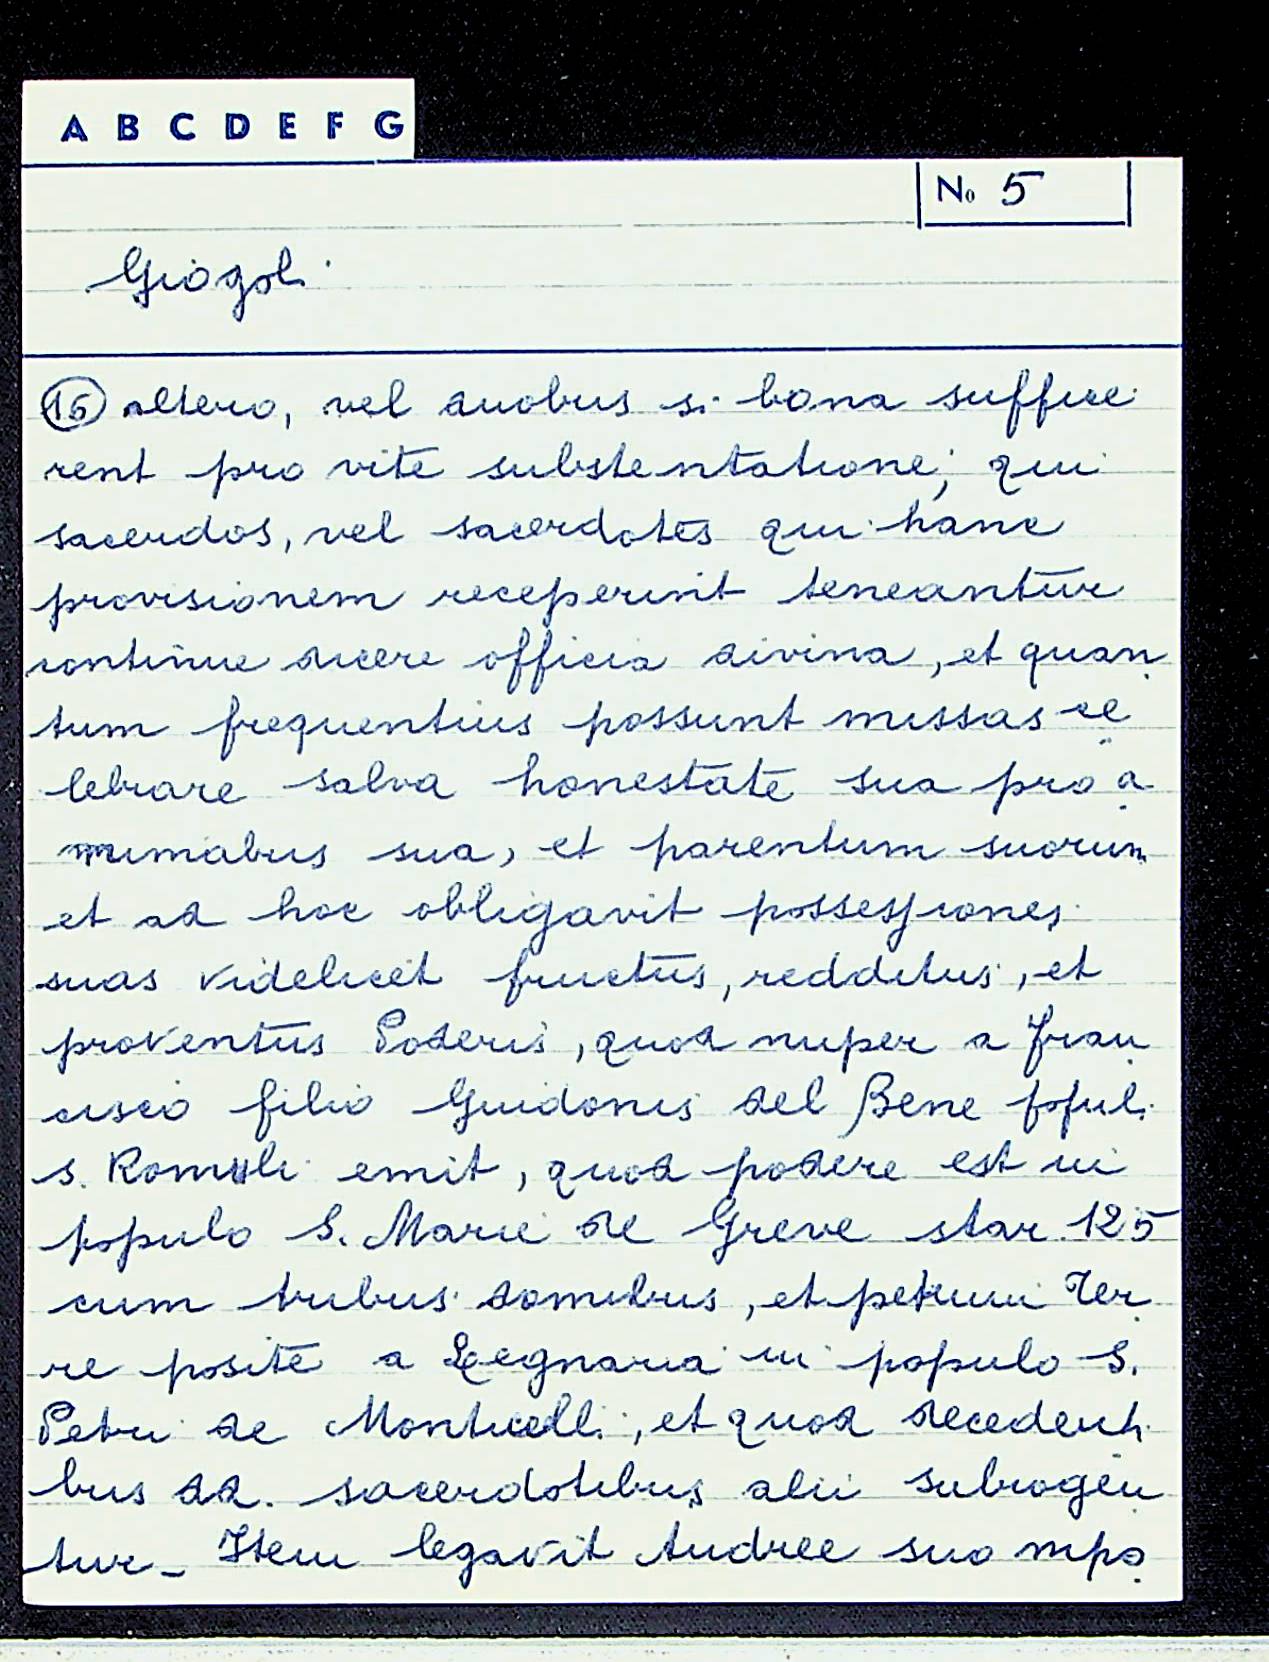 A B C D E F G
No 5
Giogoli
15 altero, vel duobus si bona suffice
rent pro vite substentatione; qui
sacerdos, vel sacerdotes qui hanc
provisionem receperint teneantur
continue dicere officia divina, et quan
tum frequentius possunt missas ce
lebrare salva honestate sua pro a
nimabus sua, et parentum suorum
et ad hoc obligavit possessiones
suas videlicet fructus, redditus, et
proventus Poderis, quod nuper a Fran
cisco filio Guidonis del Bene popul.
S. Romuli emit, quod podere est in
populo S. Marie de Greve star. 125
cum tribus domibus, et petium Ter
re posite a Legnaria in populo S.
Petri de Monticelli, et quod decedenti
bus dd. sacerdotibus alii subrogen
tur_ Item legavit Andree suo nipo